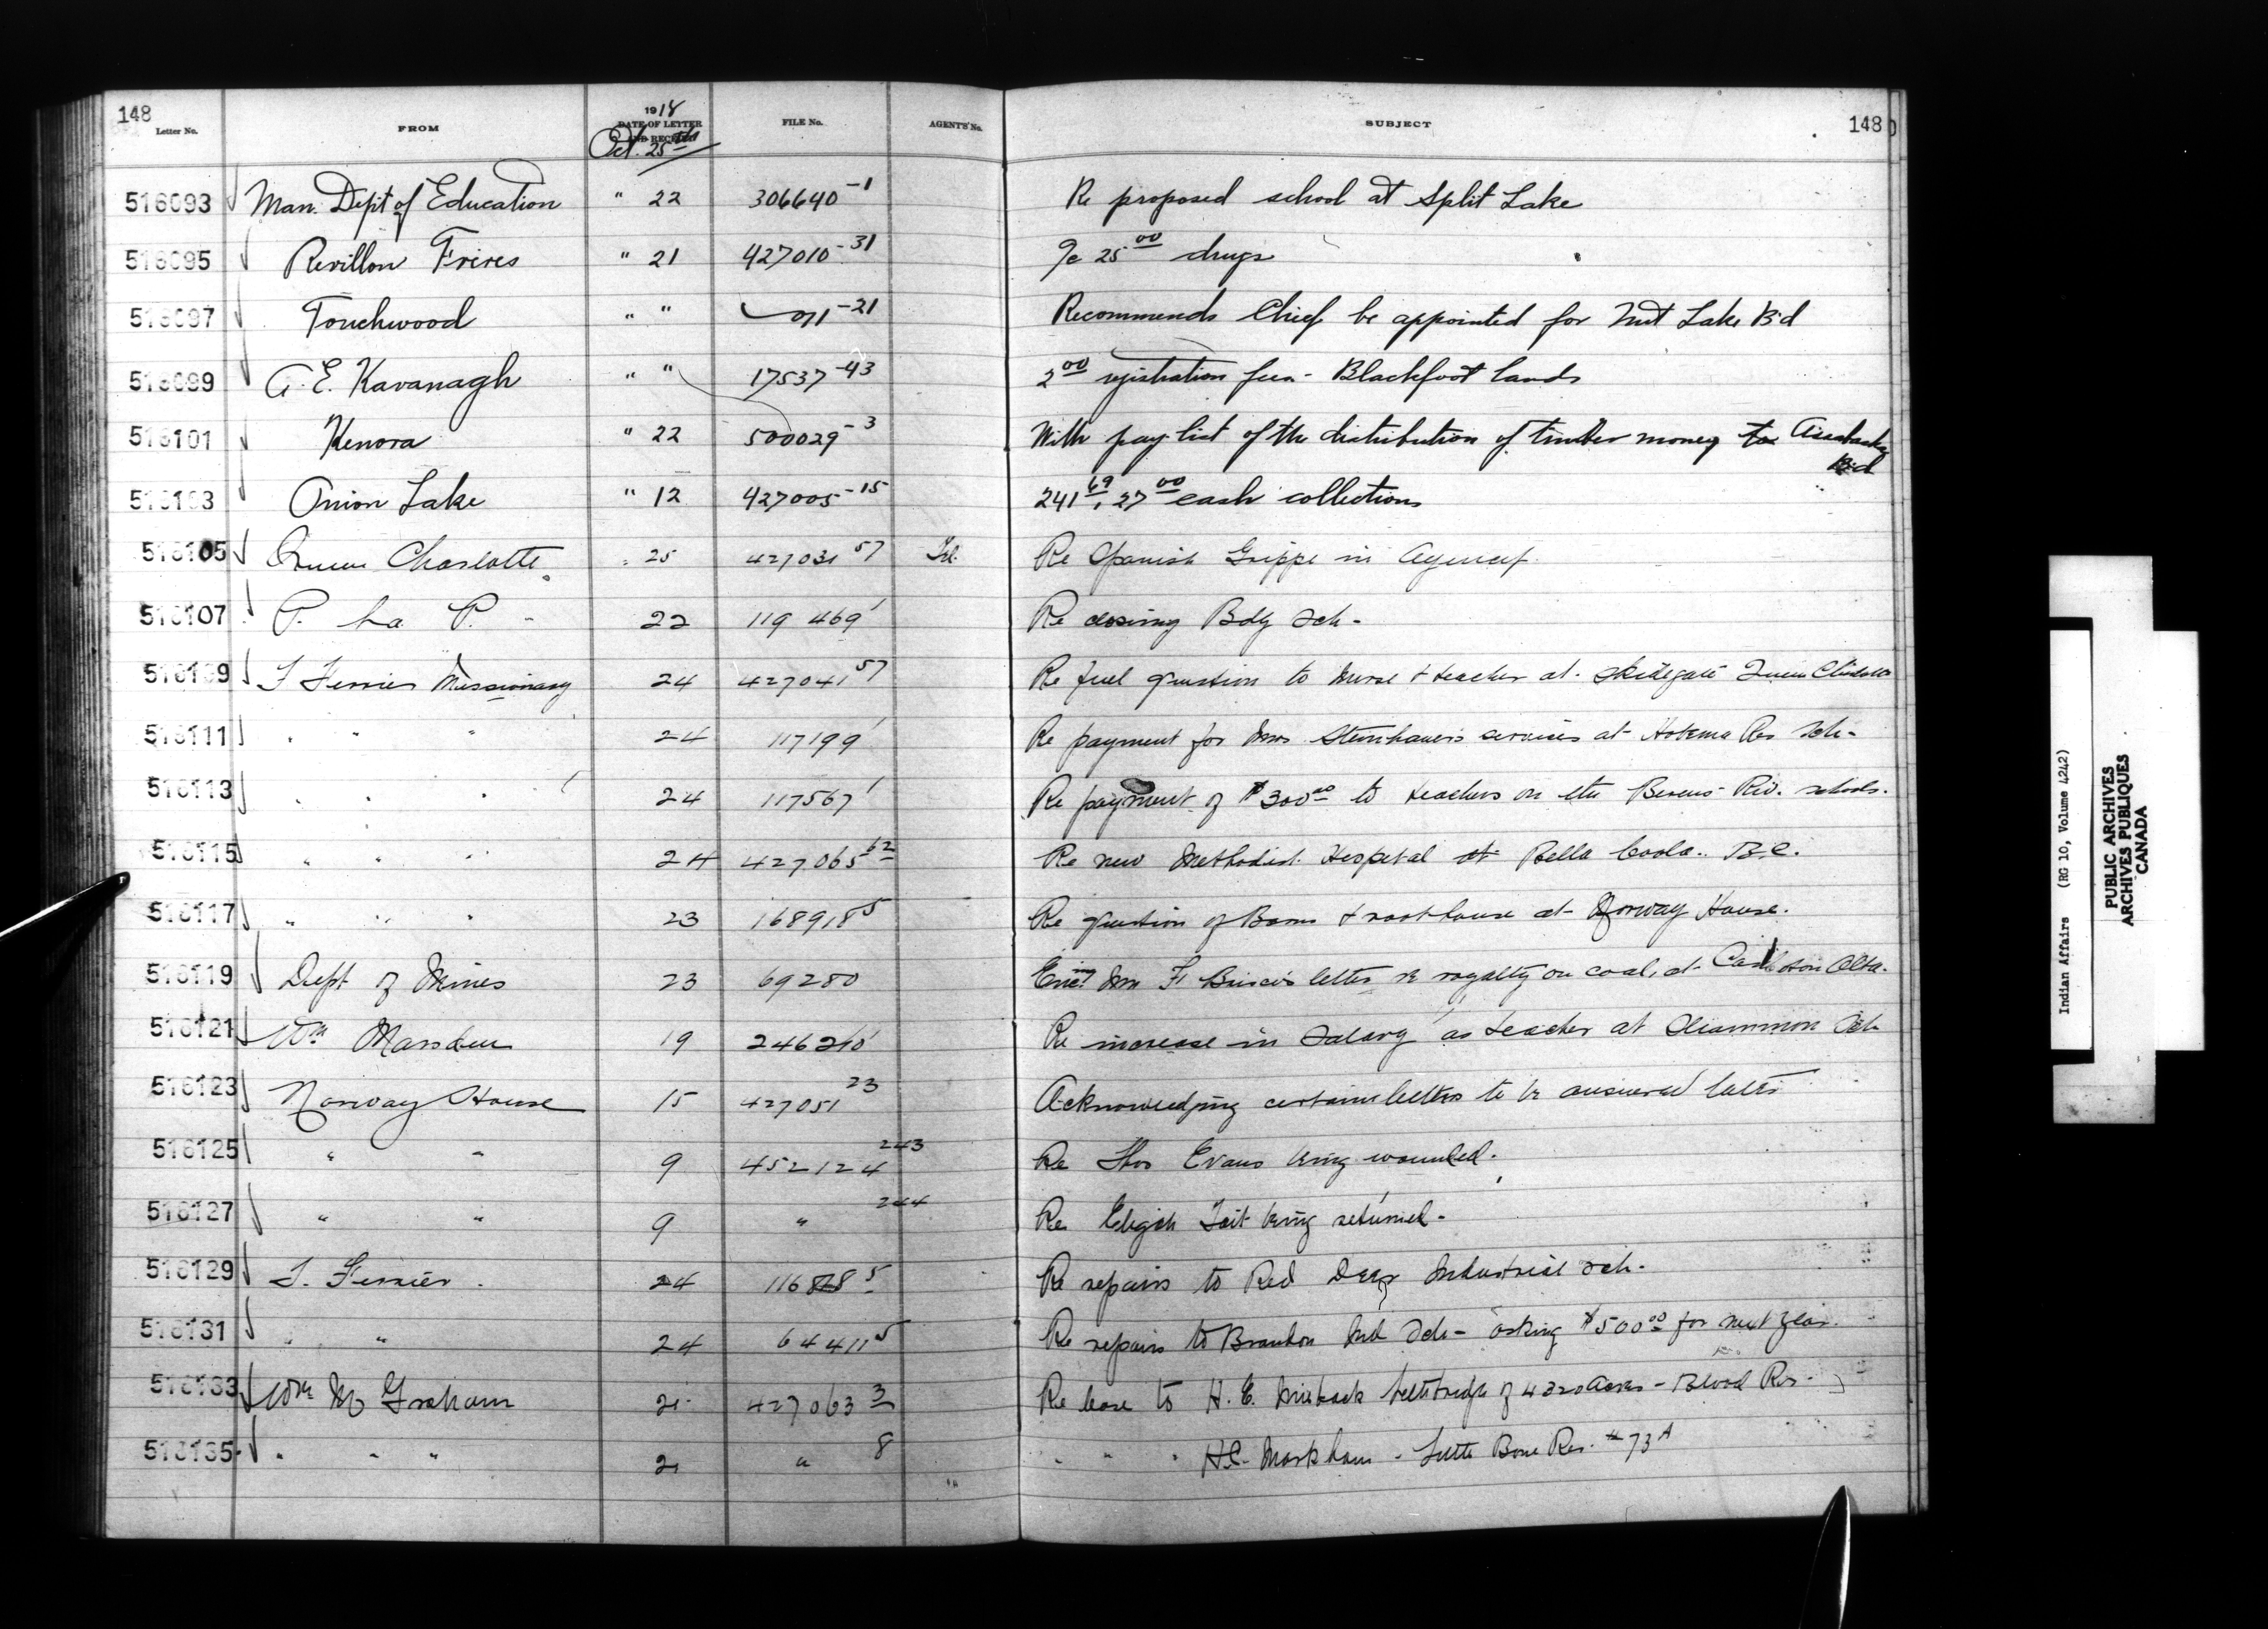 148
Letter No. FROM 1918 DATE OF LETTER AND RECEIVED FILE No. AGENTS' No. SUBJECT 148
Oct. 25th
516093 Man. Dept of Education " 22 306640-1 Re proposed school at Split Lake
516095 Revillon Freres " 21 427010-31 a/c 25.00 drugs
516097 Touchwood " " 011-21 Recommends Chief be appointed for Nut Lake Bd
516099 A. E. Kavanagh " " 17537-43 2.00 registration fees - Blackfoot lands
516101 Kenora " 22 500029-3 With pay-list of the distribution of timber money to
Bd
516103 Onion Lake " 12 427005-15 241.69, 27.00 cash collections
516105 Queen Charlotte " 25 427031 57 Tel. Re Spanish Grippe in Agency
516107 P. La P. - 22 119 469 1 Re closing Bdg Sch -
516109 T Ferrier Missionary 24 427041 57 Re fuel question to nurse & teacher at Skidegate Queen Charlotte
516111 " " " 24 117199 1 Re payment for Mrs Steinhauer's services at Res Sch -
516113 " " " 24 117567 1 Re payment of $300.00 to teachers on the Berens Riv. schools.
516115 " " " 24 427065 62 Re new Methodist Hospital at Bella Coola. B.C.
516117 " " " 23 168918 5 Re question of Barn & roothouse at Norway House.
516119 Dept of Mines 23 69280 Encg Mr F letter re royalty on coal, at Alta.
516121 Wm Marsden 19 246210 1 Re increase in Salary as teacher at Sliammon Sch
516123 Norway House 15 427051 23 Acknowledging certain letters to be answered later
516125 " " 9 452124 243 Re Thos Evans being wounded.
516127 " " 9 " 244 Re Elijah Tait being returned -
516129 T. Ferrier. 24 5 Re repairs to Red Deer Industrial Sch -
516131 " " 24 64411 5 Re repairs to Brandon Ind Sch - asking $500.00 for next year.
516133 Wm M Graham 21 427063 3 Re lease to H. E. Lethbridge of 4320 Acres - Blood Res -
516135 " " " 21 " 8 " " " H.C. Markham - Little Bone Res. # 73A
Indian Affairs (RG 10, Volume 4242)
PUBLIC ARCHIVES
ARCHIVES PUBLIQUES
CANADA